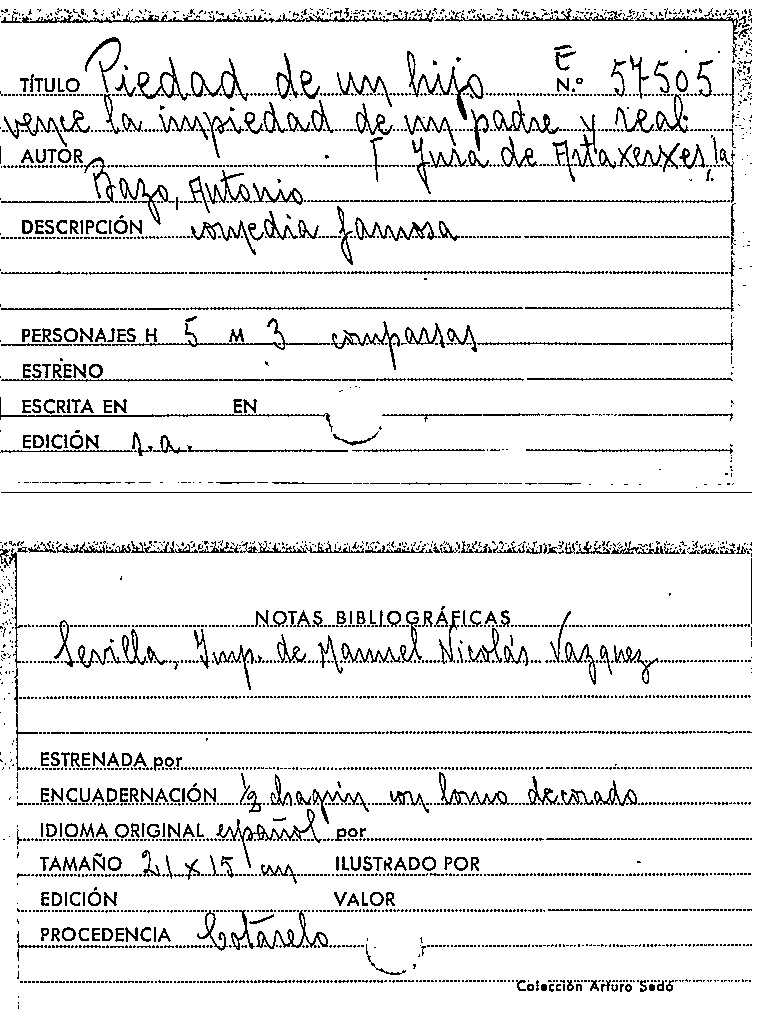 TÍTULO Piedad de un hijo E N.º 57505
vence la impiedad de un padre y real
AUTOR Jura de Artaxerxes, la
Bazo, Antonio
DESCRIPCIÓN comedia famosa
PERSONAJES H 5 M 3 comparsas
ESTRENO
ESCRITA EN EN
EDICIÓN s.a.
NOTAS BIBLIOGRÁFICAS
Sevilla, Imp. de Manuel Nicolás Vazquez
ESTRENADA por
ENCUADERNACIÓN ½ chagrin con lomo decorado
IDIOMA ORIGINAL español por
TAMAÑO 21 x 15 cm ILUSTRADO POR
EDICIÓN VALOR
PROCEDENCIA Cotarelo
Colección Arturo Sedó